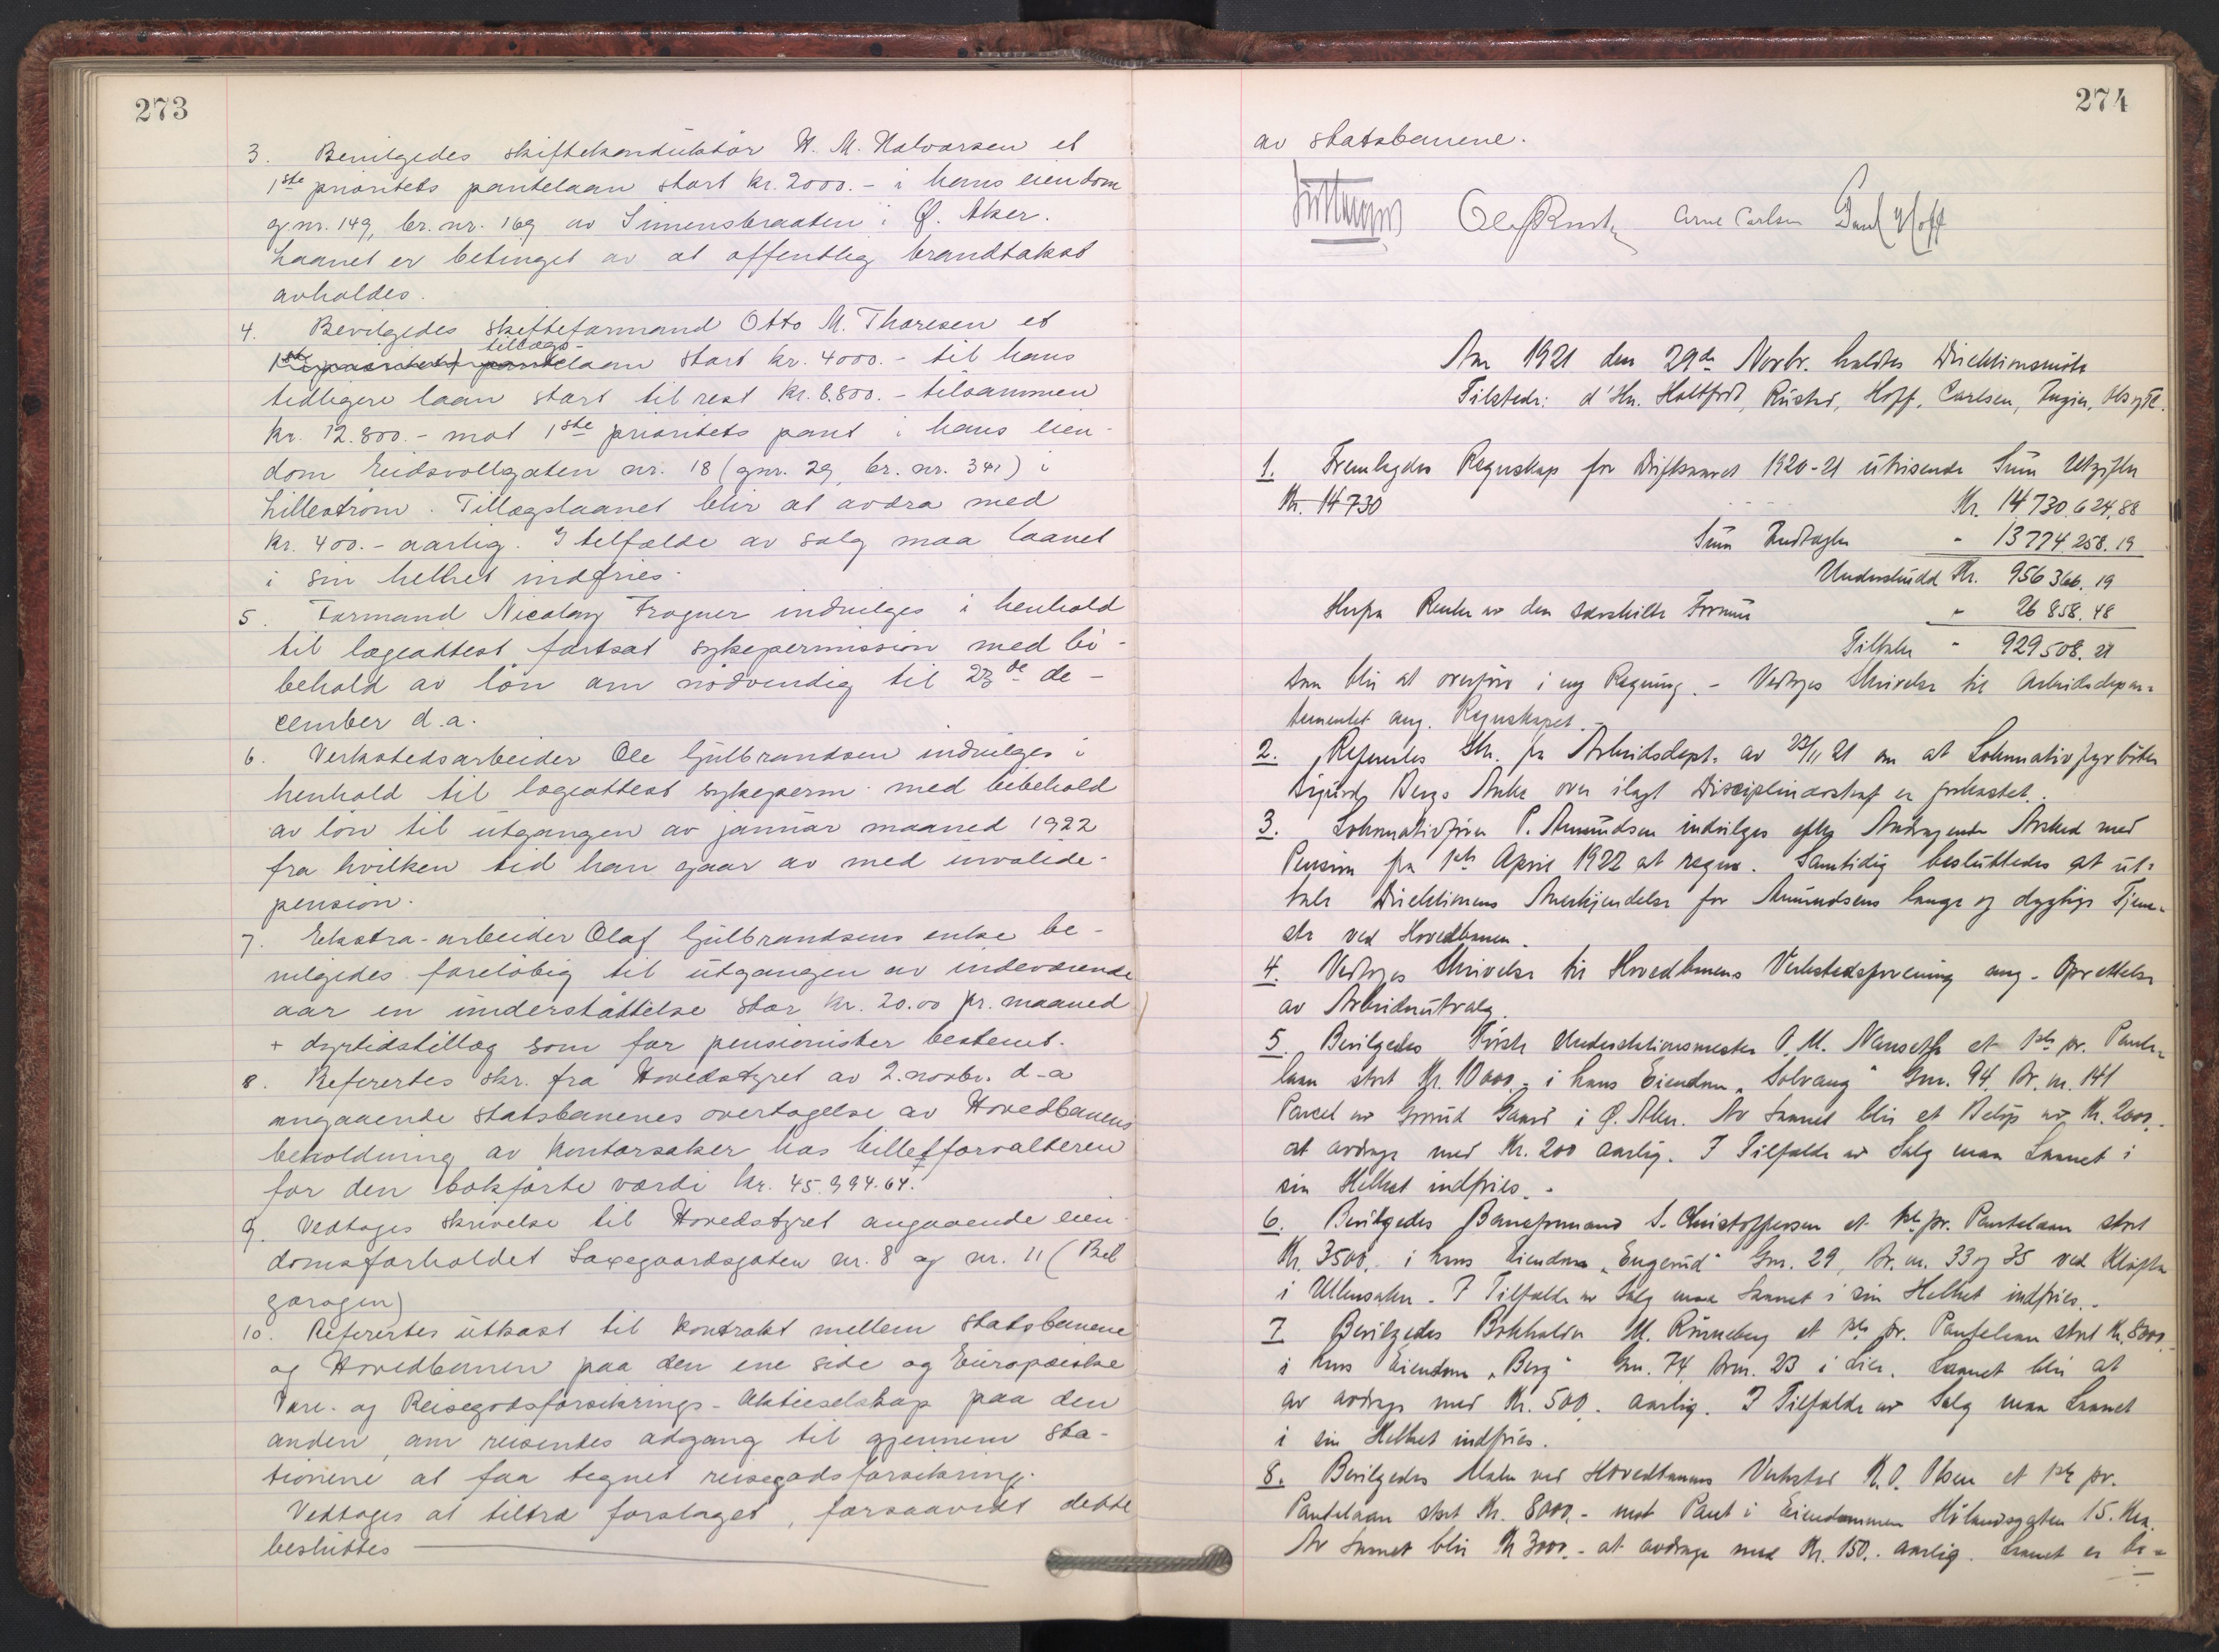 273
3. Bevilgedes skiftekonduktör H. M. Halvorsen et
1ste prioritets pantelaan stort kr. 2000.- i hans eiendom
g.nr. 149, br. nr. 169 av Simensbraaten i Ø. Aker.
Laanet er betinget av at offentlig brandtakst
avholdes.
4. Bevilgedes skifteformand Otto M. Thoresen et
tillægs-
1ste prioritets pantelaan stort kr. 4000.- til hans
tidligere laan stort til rest kr. 8.800.- tilsammen
kr. 12.800.- mot 1ste prioritets pant i hans eien-
dom Eidsvollgaten nr. 18 (gnr. 29, br. nr. 341) i
Lilleström. Tillægslaanet blir at avdra med
kr. 400.- aarlig. I tilfælde av salg maa laanet
i sin helhet indfries.
5. Formand Nicolay Frogner indvilges i henhold
til lægeattest fortsat sykepermission med bi-
behold av lön om nödvendig til 23de de-
cember d.a.
6. Verkstedsarbeider Ole Gulbrandsen indvilges i
henhold til lægeattest sykeperm. med bibehold
av lön til utgangen av januar maaned 1922
fra hvilken tid han gaar av med invalide-
pension.
7. Ekstra-arbeider Olaf Gulbrandsens enke be-
vilgedes foreløbig til utgangen av indeværende
aar en understöttelse stor kr. 20.00 pr. maaned
+ dyrtidstillæg som for pensionister bestemt.
8. Referertes skr. fra Hovedstyret av 2. novbr. d-a
angaaende statsbanenes overtagelse av Hovedbanens
beholdning av kontorsaker hos billetforvalteren
for den bokförte værdi kr. 45.994.64.
9. Vedtages skrivelse til Hovedstyret angaaende eien-
domsforholdet Saxegaardsgaten nr. 8 og nr. 11 (Bil
garagen)
10. Referertes utkast til kontrakt mellem statsbanene
og Hovedbanen paa den ene side og Europæiske
Vare- og Reisegodsforsikrings-Aktieselskap paa den
anden, om reisendes adgang til gjennem sta-
tionene at faa tegnet reisegodsforsikring.
Vedtages at tiltræ forslaget, forsaavidt dette
besluttes
274
av statsbanene.
Arne Carlsen Paul Hoff
Aar 1921 den 29de Novbr. holdtes Direktionsmöte
Tilstede: d'Hrr. Holtfodt, Rustad, Hoff, Carlsen,
1. Fremlagdes Regnskap for Driftsaaret 1920-21 utvisende Sum Utgifter
Kr. 14730
Kr. 14 730.624,88
Sum Indtægter " 13 774 258.19
Underskudd Kr. 956 366.19
Herfra Renter av den særskilte Formue " 26 858.48
Tilbake " 929 508.21
som blir at overføre i ny Regning. - Vedtages Skrivelse til Arbeidsdepar-
tementet ang. Regnskapet.-
2. Refertes Skr. fra Arbeidsdept. av 23/11 21 om at Lokomotivfyrböter
Sigurd Bergs Anke over ilagt Disciplinærstraf er forkastet.
3. Lokomotivförer P. Amundsen indvilges efter Andragende Avsked med
Pension fra 1ste April 1922 at regne. Samtidig besluttedes at ut-
tale Direktionens Anerkjendelse for Amundsens lange og dygtige Tjene-
ste ved Hovedbanen.
4. Vedtages Skrivelse til Hovedbanens Verkstedsforening ang. Oprettelse
av Arbeidsutvalg.
5. Bevilgedes Første Understationsmester O. M. Nanseth et 1ste pr. Pante-
laan stort Kr. 10000.- i hans Eiendom "Solvang" Gnr. 94, Br. nr. 141
Parcel av Grorud Gaard i Ø. Aker. Av Laanet blir et Beløp av Kr. 2000.-
at avdrage med Kr. 200 aarlig. I Tilfælde av Salg maa Laanet i
sin Helhet indfries.-
6. Bevilgedes Baneformand S. Christoffersen et 1ste pr. Pantelaan stort
Kr. 3500.- i hans Eiendom "Engerud" Gnr. 29, Br. nr. 33 og 35 ved Kløfta
i Ullensaker. I Tilfælde av Salg maa Laanet i sin Helhet indfries.-
7 Bevilgedes Bokholder M. Rönneberg et 1ste pr. Pantelaan stort Kr. 8000.-
i hans Eiendom "Berg" Gnr. 74 Brnr. 23 i Lier. Laanet blir at
av avdrage med Kr. 500.- aarlig. I Tilfælde av Salg maa Laanet
i sin Helhet indfries.
8. Bevilgedes Maler ved Hovedbanens Verksted K. O. Olsen et 1ste pr.
Pantelaan stort Kr. 8000.- mot Pant i Eiendommen Hölandsgaten 15. Kra.
Av Laanet blir Kr 3000.- at avdrage med Kr. 150.- aarlig. Laanet er be-